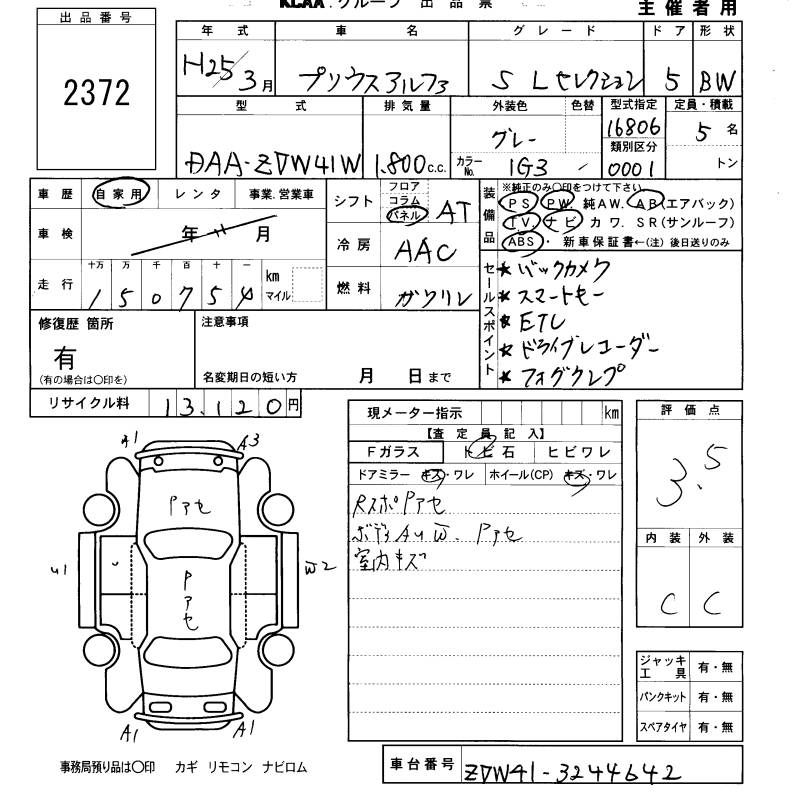 KCAA.グループ 出 品 票
主 催 者 用
出 品 番 号
2372
年 式
車 名
グ レ ー ド
ド ア
形 状
H25/3月
プリウスアルファ
S Lセレクション
5
BW
型 式
排 気 量
外装色
色替
型式指定
定員・積載
DAA-ZVW41W
1,800 c.c.
グレー
カラーNo.
1G3
16806
類別区分
0001
5 名
トン
車 歴
自 家 用
レ ン タ
事業.営業車
車 検
年 月
走 行
十万 万 千 百 十 一
1 5 0 7 5 4
km
マイル
シフト
フロア
コラム
パネル
AT
冷 房
AAC
燃 料
ガソリン
装備品
※純正のみ〇印をつけて下さい
PS PW 純AW. AB(エアバック)
TV. ナビ カワ. SR(サンルーフ)
ABS・ 新車保証書←(注) 後日送りのみ
セールスポイント
★ バックカメラ
★ スマートキー
★ ETC
★ ドライブレコーダー
★ フォグランプ
修復歴 箇所
有
(有の場合は〇印を)
注意事項
名変期日の短い方 月 日まで
リサイクル料
13,120円
現メーター指示
km
【査 定 員 記 入】
Fガラス
ト ビ 石
ヒ ビ ワ レ
ドアミラー キズ・ワレ
ホイール(CP) キズ・ワレ
RスポPアセ
ボディAUW. Pアセ
室内キズ
評 価 点
3.5
内 装
外 装
C
C
ジャッキ工具 有・無
パンクキット 有・無
スペアタイヤ 有・無
A1
A3
Pアセ
U1
W2
Pアセ
A1
A1
事務局預り品は〇印 カギ リモコン ナビロム
車台番号
ZVW41-3244642